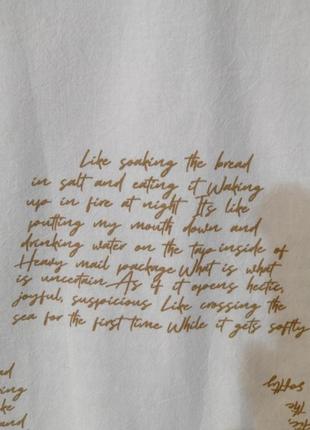 Like soaking the bread
in salt and eating it Waking
up in fire at night It's like
putting my mouth down and
drinking water on the tap inside of
Heavy mail package What is what
is uncertain As if it opens hectic,
joyful, suspicious Like crossing the
sea for the first time While it gets softly
ad
ing
ke
and
softly
The